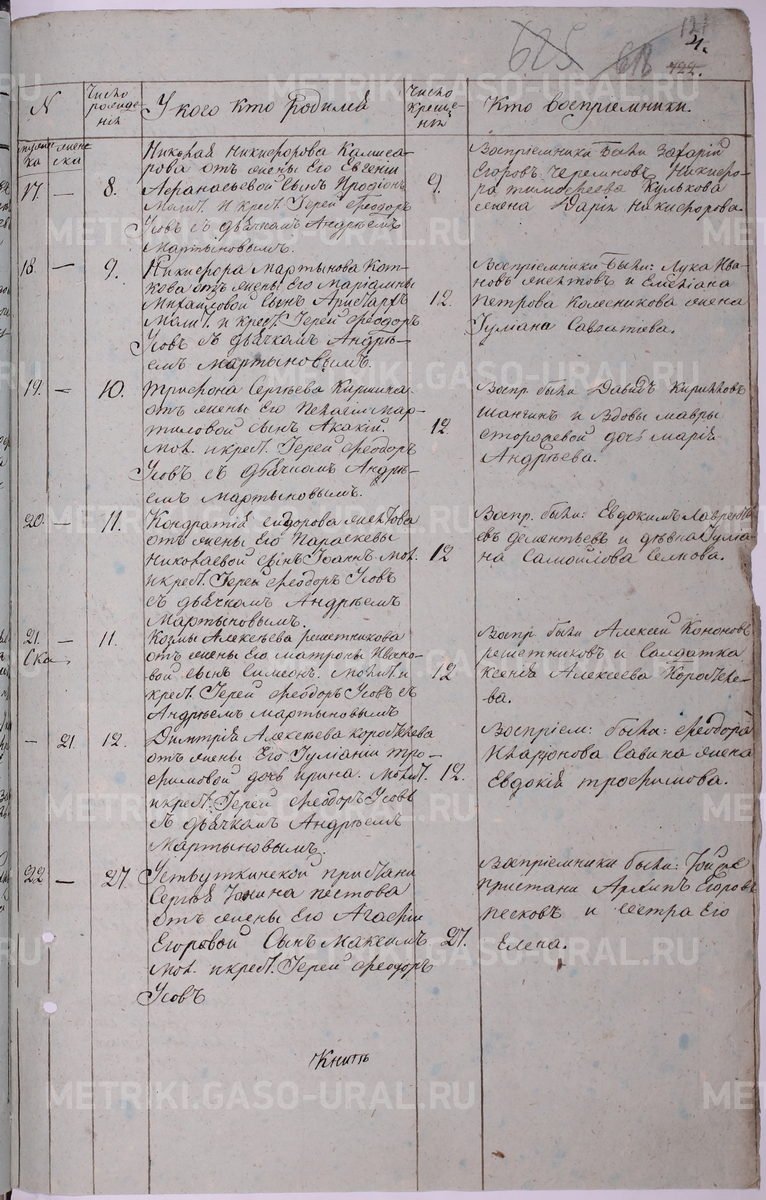 625 618 121
4.
422.
N Число рожде- нія У кого кто родился Число креще- нія Кто воспріемники.
мужес- ка женс- ска
Николая Никифорова Комиса-
рова отъ жены Его Евгении
17. — 8. Афанасьевой Сынъ Иродіонъ 9.
Молит. и крест. Іерей Феодоръ
Усовъ съ дьячкомъ Андрѣемъ
Мартыновымъ.
Воспріемники были Захарій
Егоровъ Черемновъ, Никифо-
ра Тимофеева Кулькова
жена Дарія Никифорова.
18. — 9. Никифора Мартынова Кот-
кова отъ жены Его Маріамны
Михайловой Сынъ Аристархъ 12.
Молит. и крест. Іерей Феодоръ
Усовъ Съ дьячкомъ Андрѣ-
емъ Мартыновымъ.
Воспріемники были: Лука Ива-
новъ и
Петрова Колесникова жена
Іуліана Савватиева.
19. — 10. Трифона Сергѣева
отъ жены Его Пелагеи Мар-
тиловой Сынъ Акакій. 12.
Мол. и крест. Іерей Феодоръ
Усовъ съ дьячкомъ Андрѣ-
емъ Мартыновымъ.
Воспр. были Давидъ Кириловъ
Шангин и вдовы Мавры
дочь Марія
Андрѣева.
20. — 11. Кондратій
отъ жены Его Параскевы
Николаевой сынъ Іоаннъ мол. 12
и крест. Іерей Феодоръ Усовъ
съ дьячкомъ Андрѣемъ
Мартыновымъ.
Воспр. были: Евдокимъ Лаврентъ-
евъ Дементьевъ и дѣвка Іуліа-
на Самойлова
21. — 11. Козмы Алексѣева Решетникова
Ска отъ жены Его Матроны Ивано-
вой сынъ Симеонъ. Молит. и 12
крест. Іерей Феодоръ Усовъ съ
Андрѣемъ Мартыновымъ
Воспр были Алексей Кононовъ
Решетниковъ и Солдатка
Ксенія Алексеева Коробей-
ва.
— 21. 12. Димитрія Алексеева
отъ жены Его Іуліаніи Тро-
фимовой дочь Ирина. Молит. 12.
и крест. Іерей Феодоръ Усовъ
Съ дьячкомъ Андрѣемъ
Мартыновымъ.
Воспріем: были: Феодора
Иларіонова Савина жена
Евдокія Трофимова.
22 — 27. Устьуткинской пристани
Сергія Іонина Пестова
отъ жены Его Агафіи
Егоровой Сынъ Максимъ 27.
Мол. и крест. Іерей Феодоръ
Усовъ
Воспріемники были: Той же
пристани Архипъ Егоровъ
Песковъ и сестра Его
Елена.
METRIKI.GASO-URAL.RU